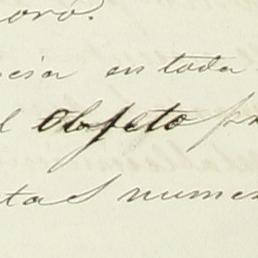 oro.
cia en toda
l Objeto pr
tas numer